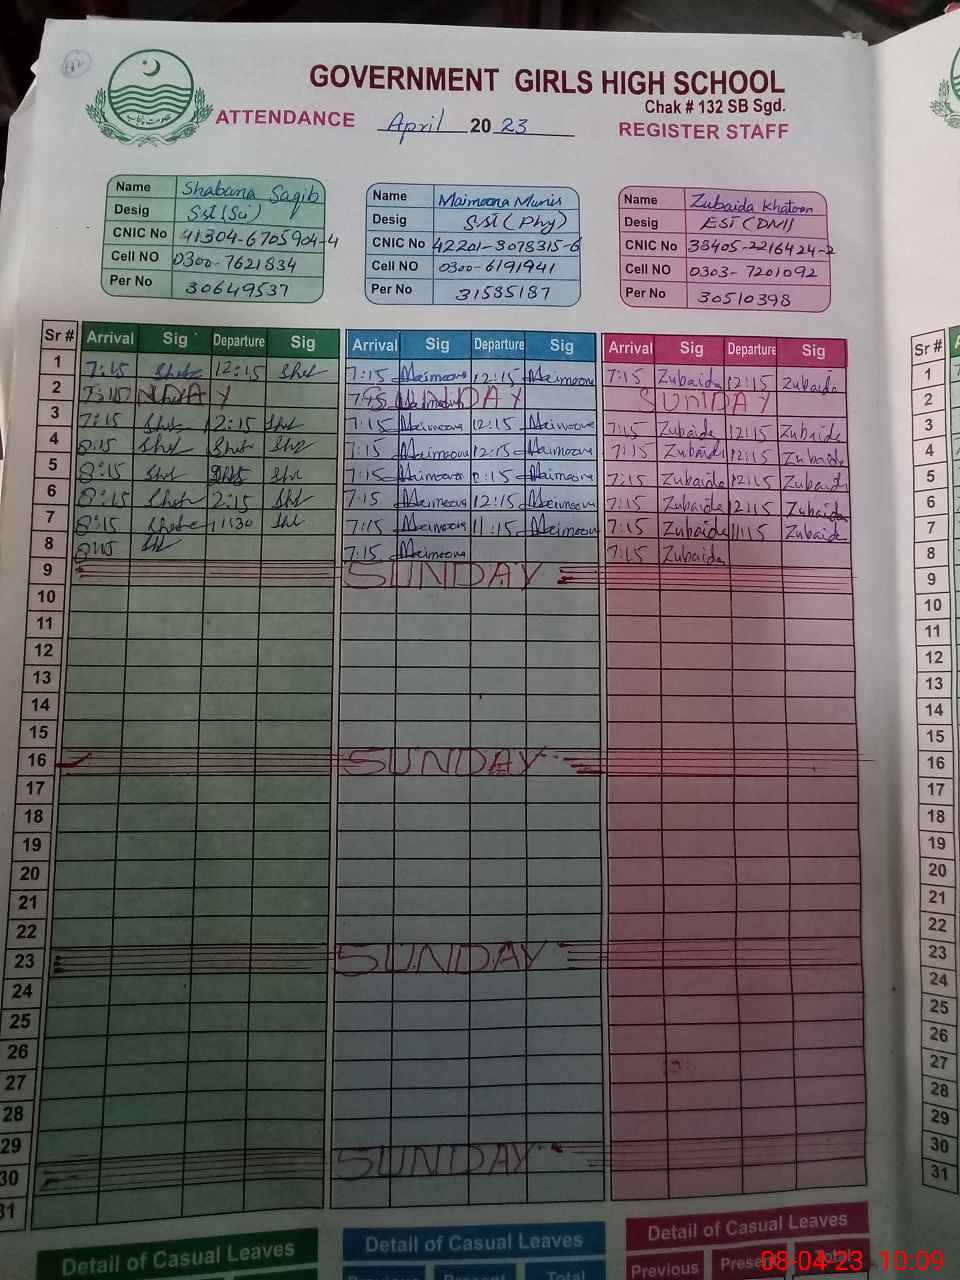 GOVERNMENT GIRLS HIGH SCHOOL
Chak # 132 SB Sgd.
ATTENDANCE April 2023 REGISTER STAFF
Name Shabana Saqib
Desig SST (Sci)
CNIC No 41304-6705904-4
Cell NO 0300-7621834
Per No 30649537
Name Maimoona Munir
Desig SST (Phy)
CNIC No 42201-3078315-6
Cell NO 0300-6191941
Per No 31585187
Name Zubaida Khatoon
Desig EST (DM)
CNIC No 38405-2216424-2
Cell NO 0303-7201092
Per No 30510398
Sr # Arrival Sig Departure Sig Arrival Sig Departure Sig Arrival Sig Departure Sig
1 7:15 12:15 7:15 Maimoona 12:15 Maimoona 7:15 Zubaida 12:15 Zubaida
2 SUNDAY SUNDAY
3 7:15 12:15 7:15 Maimoona 12:15 Maimoona 7:15 Zubaida 12:15 Zubaida
4 8:15 7:15 Maimoona 12:15 Maimoona 7:15 Zubaida 12:15 Zubaida
5 8:15 7:15 Maimoona 12:15 Maimoona 7:15 Zubaida 12:15 Zubaida
6 8:15 2:15 7:15 Maimoona 12:15 Maimoona 7:15 Zubaida 12:15 Zubaida
7 8:15 11:30 7:15 Maimoona 11:15 Maimoona 7:15 Zubaida 11:15 Zubaida
8 8:15 7:15 Maimoona 7:15 Zubaida
9 SUNDAY
10
11
12
13
14
15
16 SUNDAY
17
18
19
20
21
22
23 SUNDAY
24
25
26
27
28
29
30 SUNDAY
31
Detail of Casual Leaves Detail of Casual Leaves Detail of Casual Leaves
Previous Present Total Previous Present Total
Sr #
1
2
3
4
5
6
7
8
9
10
11
12
13
14
15
16
17
18
19
20
21
22
23
24
25
26
27
28
29
30
31
08-04-23 10:09